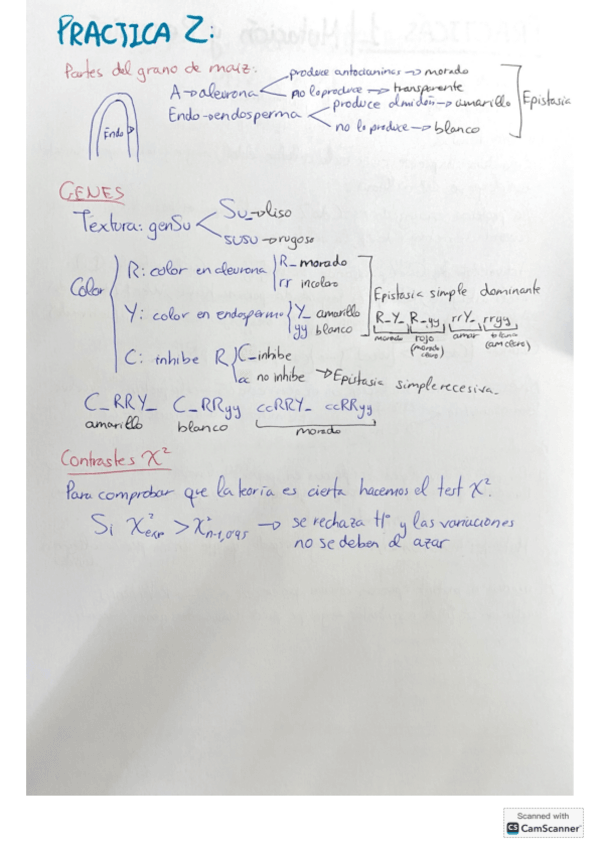 PRACTICA 2:
Partes del grano de maiz:
Endo
A→aleurona
produce antocianinas → morado
no lo produce → transparente
Endo→endosperma
produce almidón → amarillo
no lo produce → blanco
Epistasia
GENES
Textura: genSu
Su_→liso
susu→rugoso
Color
R: color en aleurona
R_ morado
rr incoloro
Y: color en endospermo
Y_ amarillo
yy blanco
Epistasia simple dominante
R_Y_ R_yy rrY_ rryy
morado rojo (morado claro) amar blanco (am claro)
C: inhibe R
C_inhibe
cc no inhibe → Epistasia simple recesiva.
C_RRY_ C_RRyy ccRRY_ ccRRyy
amarillo blanco morado
Contrastes X²
Para comprobar que la teoría es cierta hacemos el test X².
Si X²exp > X²n-1,0'95 → se rechaza H° y las variaciones
no se deben al azar
Scanned with
CS CamScanner